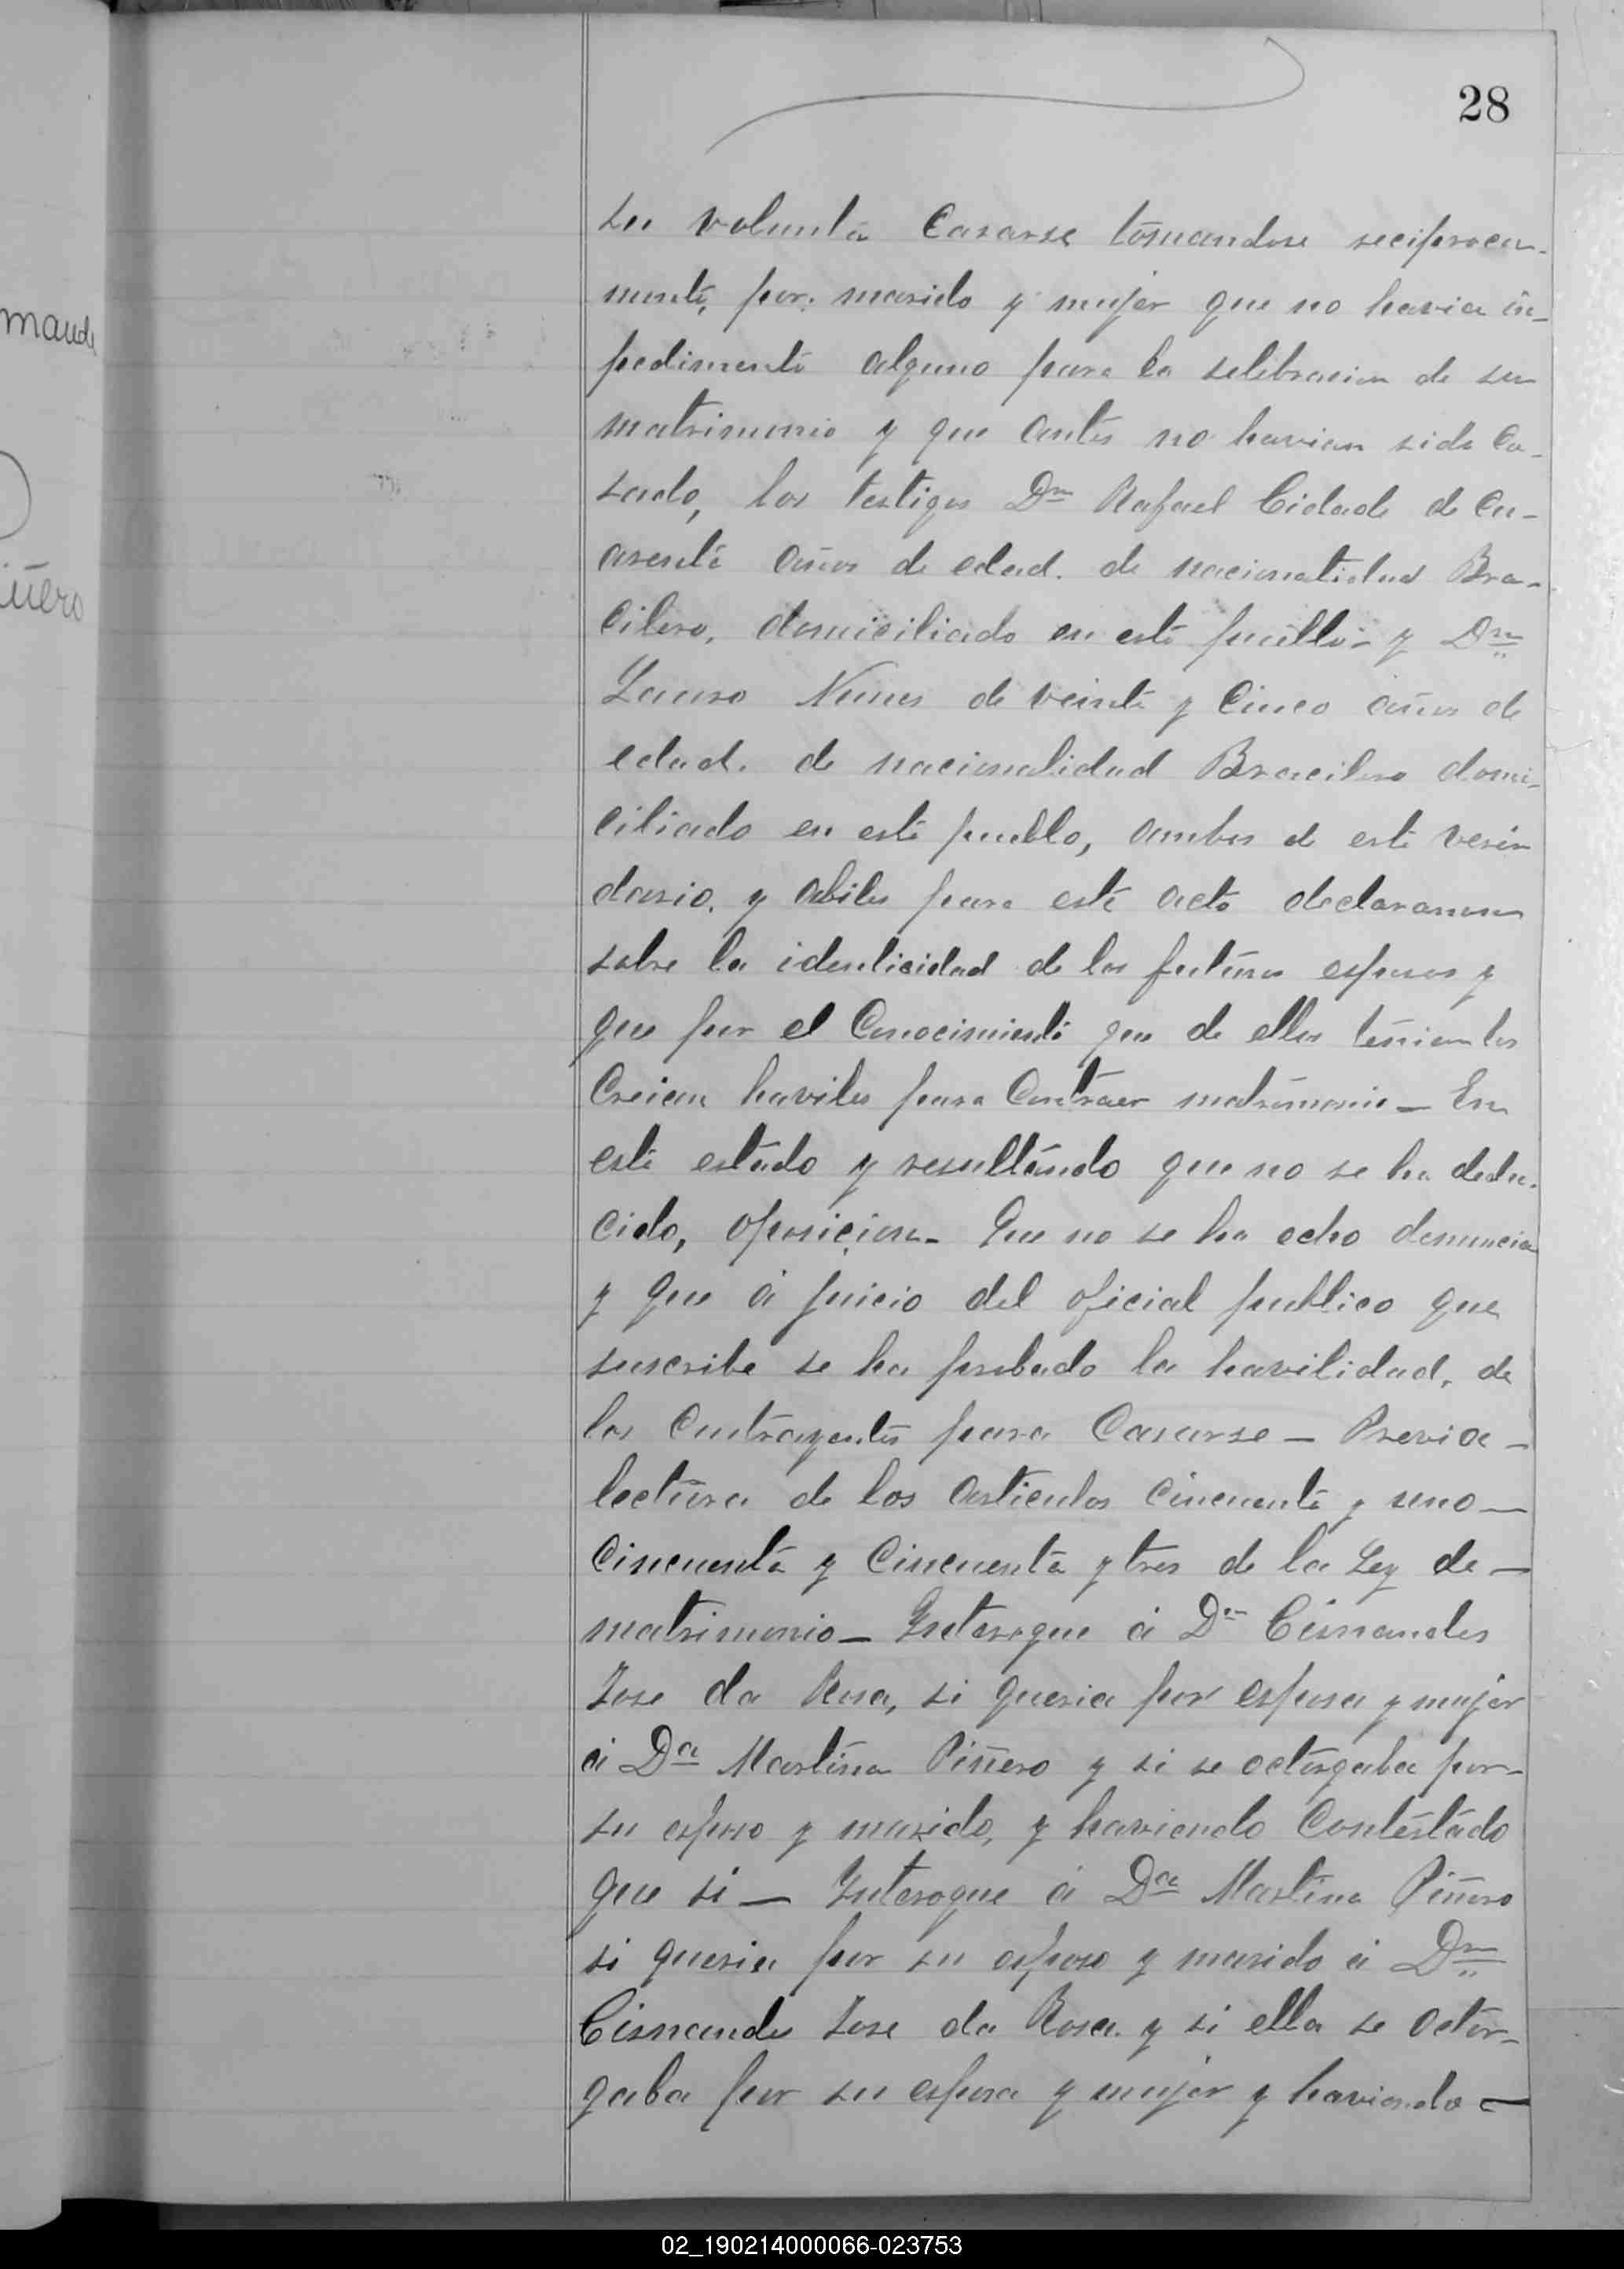 28
mande
iñero
su voluntá Casarse tomandose reciproca-
mente, por. marido y mujer que no havia in-
pedimento alguno para la selebracion de su
matrimonio y que antes no havian sido Ca-
sado, los testigos Dn Rafael Cidade de Cu-
arenta años de edad. de nacionalidad Bra-
Cilero, domiciliado en este puebllo - y Dn
Lauro Nunes de veinte y Cinco años de
edad. de nacionalidad Bracilero domi-
ciliado en este pueblo, ambos de este vesin
dario. y abiles para este acto declararon
sobre la identicidad de los futuros esposos y
que por el Conocimiento que de ellos tenian los
Creian haviles para Contraer matrimonio - En
este estado y resultando que no se ha dedu-
cido, oposicion - Que no se ha echo denuncia
y que á juicio del oficial publico que
suscribe se ha probado la havilidad, de
los Contrayentes para Casarse - Previa -
lectura de los articulos cincuenta y uno -
Cincuenta y Cincuenta y tres de la Ley de -
matrimonio - Interogue á Dn Cisnandes
Jose da Rosa, si queria por esposa y mujer
á Da Martina Piñero y si se octorgaba por -
su esposo y marido, y haviendo Contestado
que si - Interogue á Da Martina Piñero
si queria por su esposo y marido á Dn
Cisnandes Jose da Rosa. y si ella se octor-
gaba por su esposa y mujer y haviendo -
02_190214000066-023753